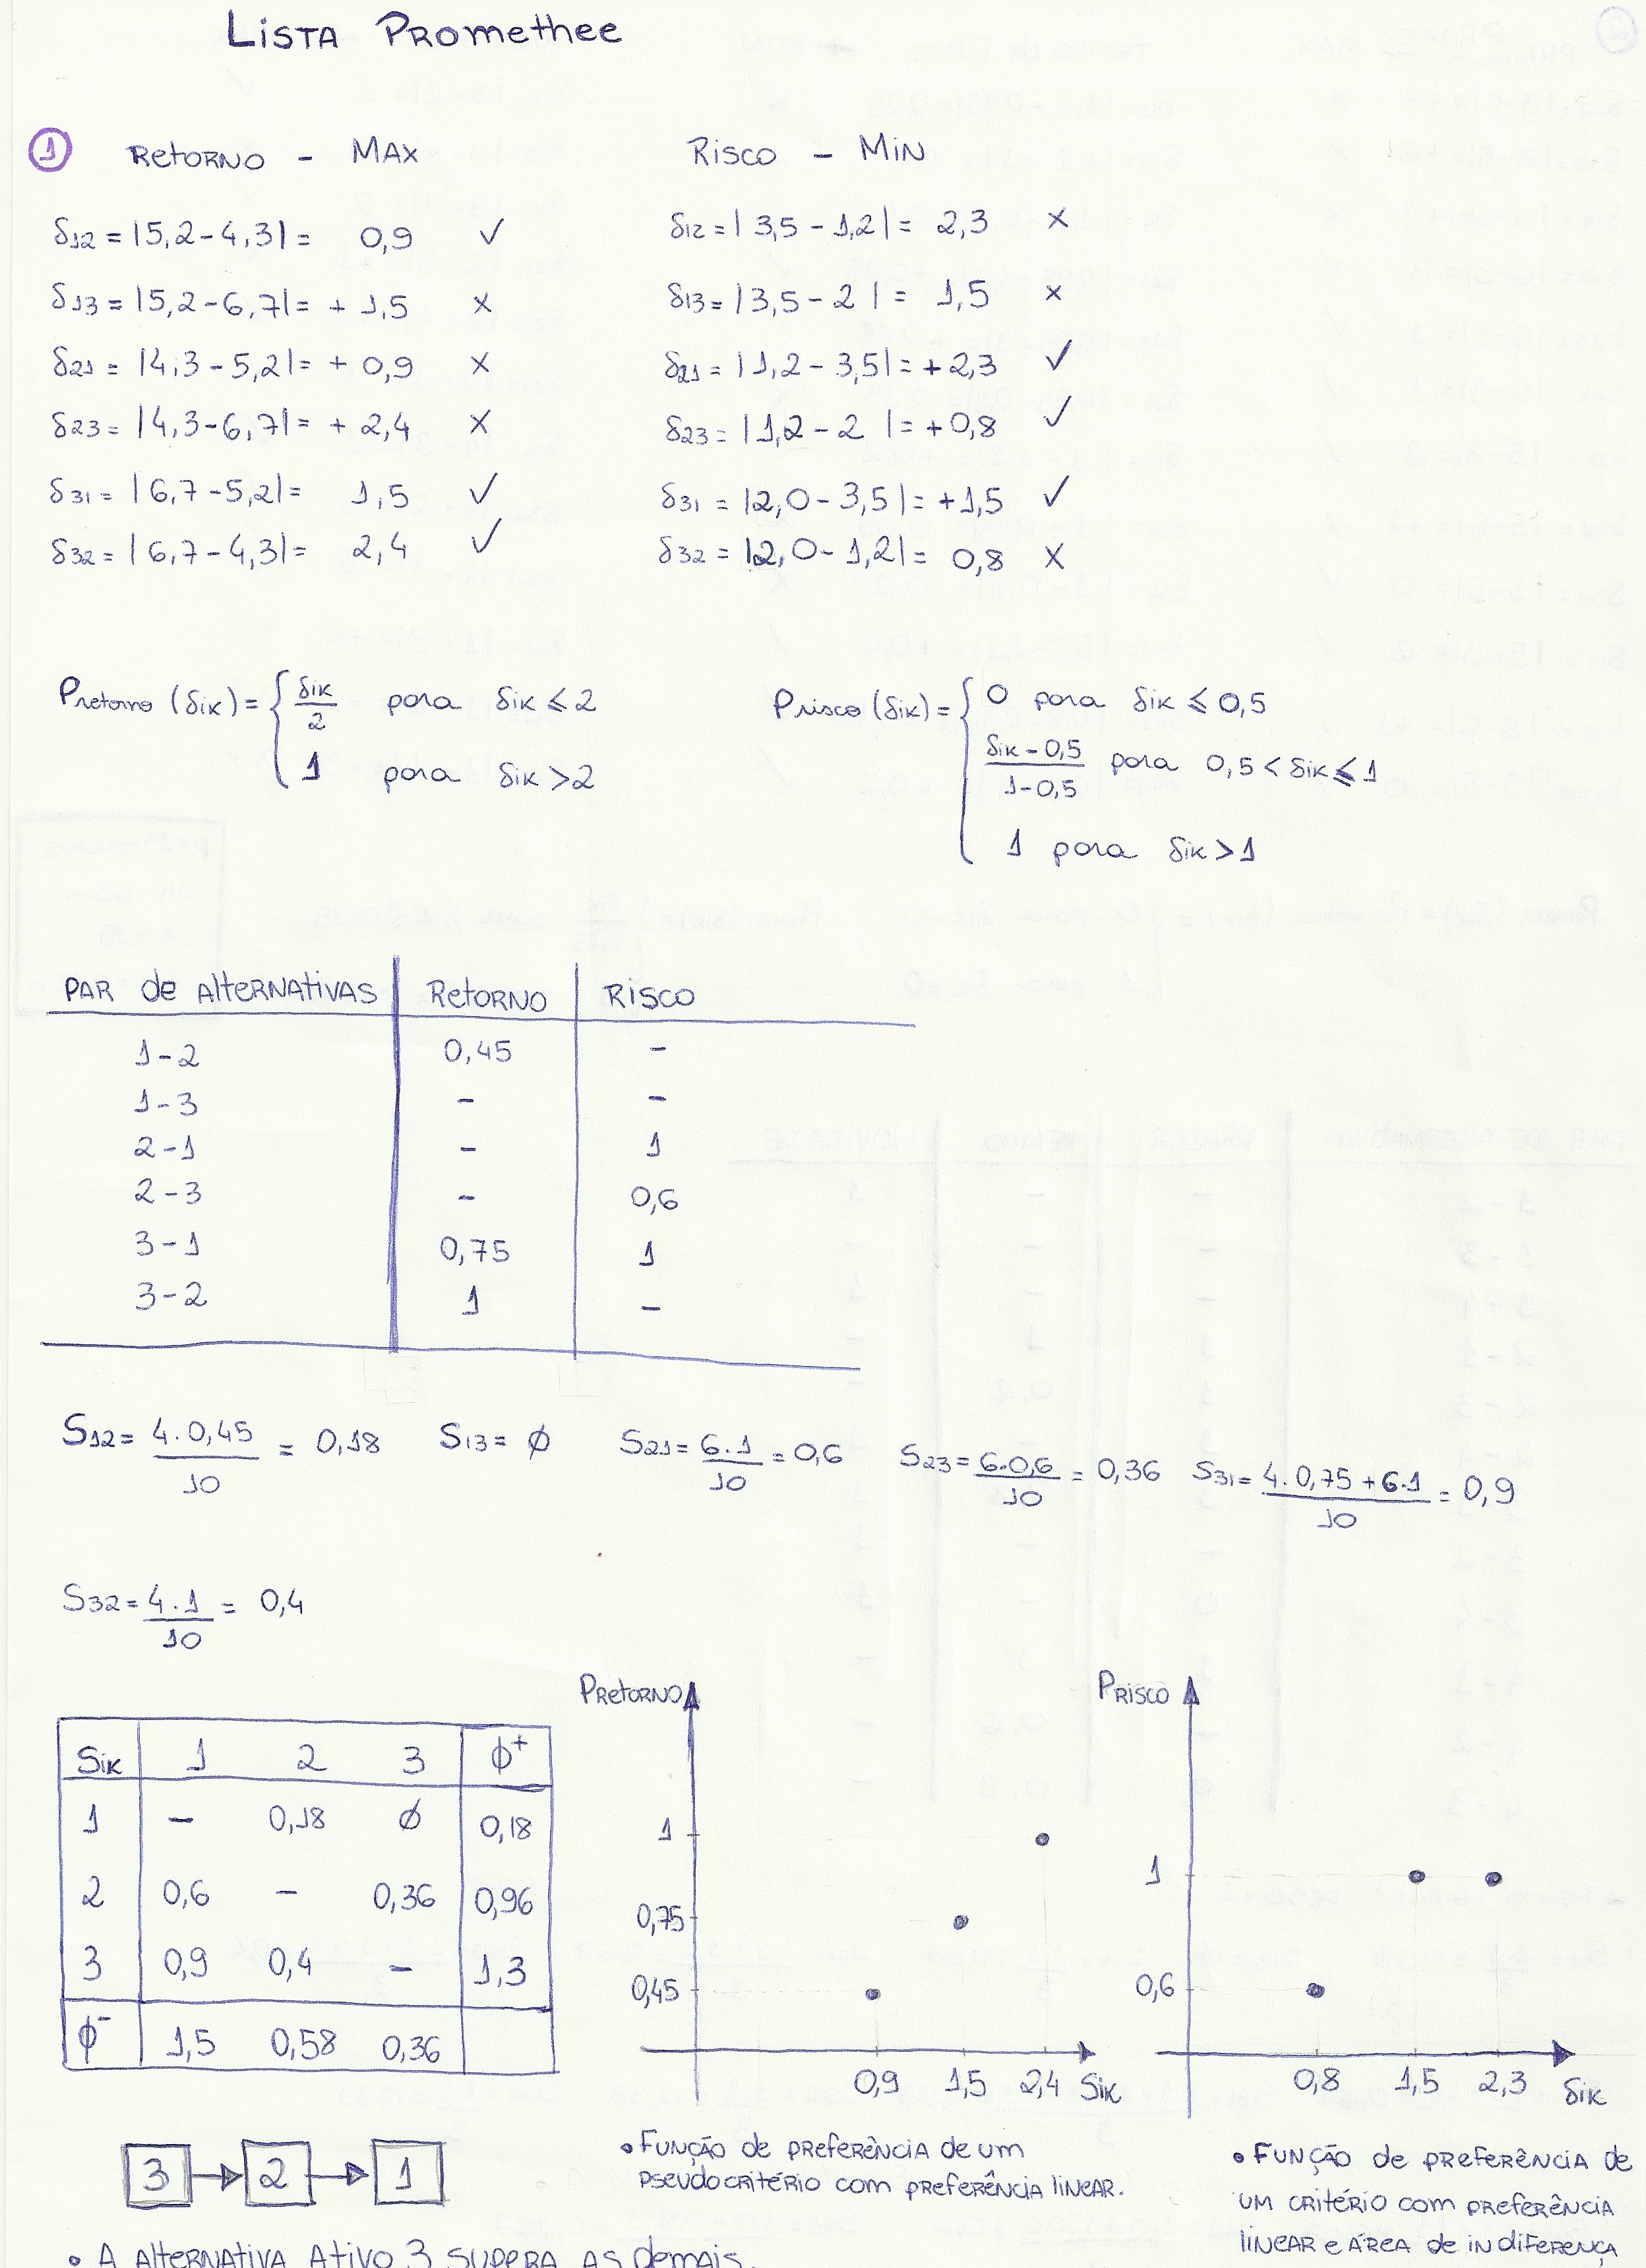 Lista Promethee
1 Retorno - MAX Risco - MIN
δ12 = |5,2-4,3| = 0,9 ✓ δ12 = |3,5-1,2| = 2,3 x
δ13 = |5,2-6,7| = +1,5 x δ13 = |3,5-2| = 1,5 x
δ21 = |4,3-5,2| = +0,9 x δ21 = |1,2-3,5| = +2,3 ✓
δ23 = |4,3-6,7| = +2,4 x δ23 = |1,2-2| = +0,8 ✓
δ31 = |6,7-5,2| = 1,5 ✓ δ31 = |2,0-3,5| = +1,5 ✓
δ32 = |6,7-4,3| = 2,4 ✓ δ32 = |2,0-1,2| = 0,8 x
Pretorno (δik) = { δik/2 para δik ≤ 2
1 para δik > 2
Prisco (δik) = { 0 para δik ≤ 0,5
δik-0,5/1-0,5 para 0,5 < δik ≤ 1
1 para δik > 1
PAR de Alternativas Retorno Risco
1-2 0,45 -
1-3 - -
2-1 - 1
2-3 - 0,6
3-1 0,75 1
3-2 1 -
S12 = 4.0,45/10 = 0,18 S13 = ϕ S21 = 6.1/10 = 0,6 S23 = 6.0,6/10 = 0,36 S31 = 4.0,75+6.1/10 = 0,9
S32 = 4.1/10 = 0,4
Sik 1 2 3 ϕ+
1 - 0,18 ϕ 0,18
2 0,6 - 0,36 0,96
3 0,9 0,4 - 1,3
ϕ- 1,5 0,58 0,36
Pretorno
1
0,75
0,45
0,9 1,5 2,4 Sik
Prisco
1
0,6
0,8 1,5 2,3 δik
3 → 2 → 1
• Função de preferência de um
pseudocritério com preferência linear.
• Função de preferência de
um critério com preferência
linear e área de indiferença
• A Alternativa Ativo 3 supera as demais.